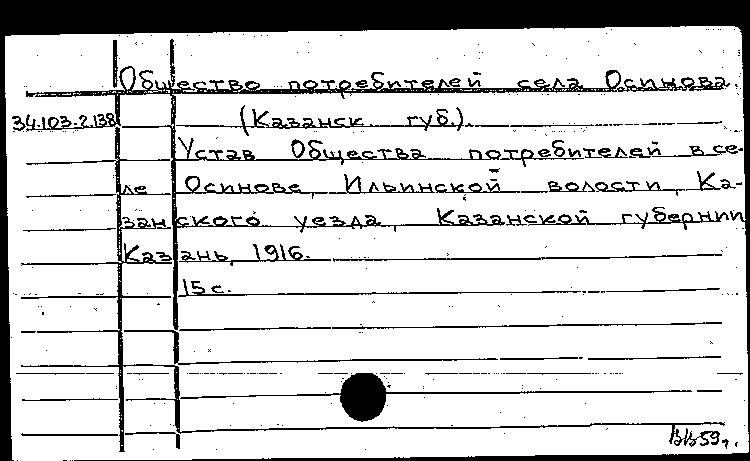 Общество потребителей села Осинова.
34.103.2.138
(Казанск. губ.).
Устав Общества потребителей в се-
ле Осинове, Ильинской волости, Ка-
занского уезда, Казанской губернии
Казань, 1916.
15 с.